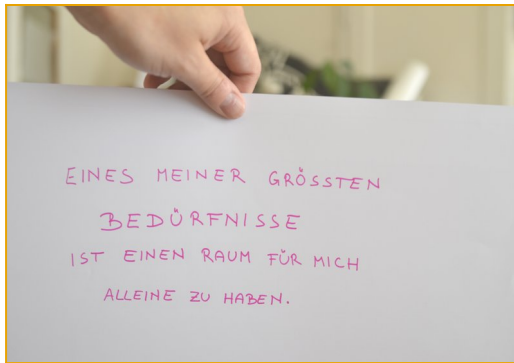 EINES MEINER GRÖSSTEN
BEDÜRFNISSE
IST EINEN RAUM FÜR MICH
ALLEINE ZU HABEN.